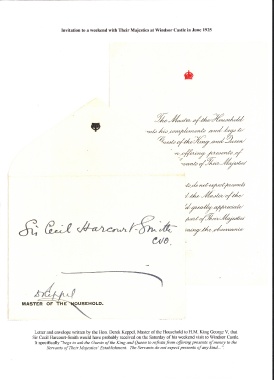 Invitation to a weekend with Their Majesties at Windsor Castle in June 1935
The Master of the Household
nts his compliments and begs to
Guests of the King and Queen
m offering presents of
rvants of Their Majesties'
ts do not expect presents
t the Master of the
d greatly appreciate
part of Their Majesties'
ing the observance
Sir Cecil Harcourt-Smith
CVO.
D Keppel
MASTER OF THE HOUSEHOLD.
Letter and envelope written by the Hon. Derek Keppel, Master of the Household to H.M. King George V, that
Sir Cecil Harcourt-Smith would have probably received on the Saturday of his weekend visit to Windsor Castle.
It specifically "begs to ask the Guests of the King and Queen to refrain from offering presents of money to the
Servants of Their Majesties' Establishment. The Servants do not expect presents of any kind..."